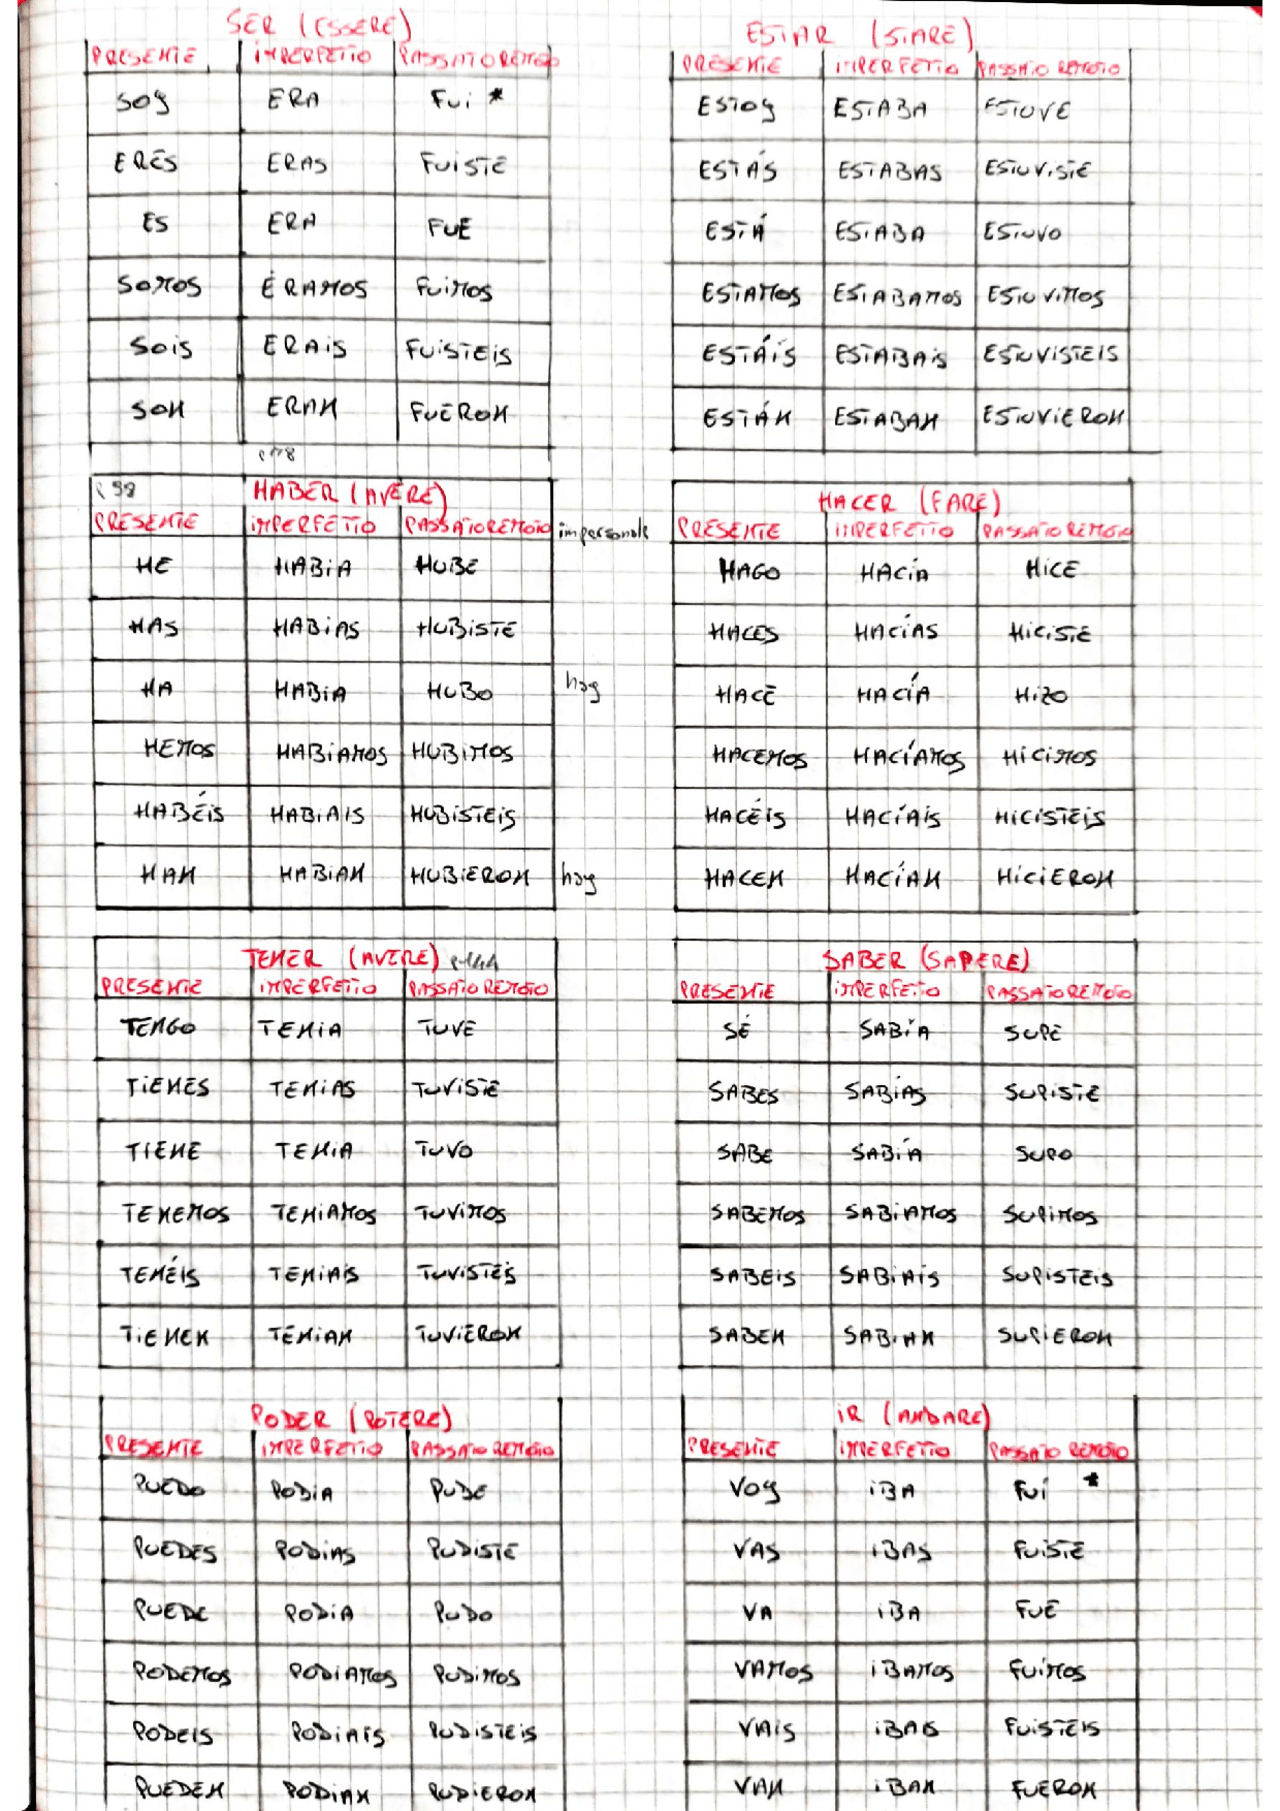 SER (ESSERE)
PRESENTE IMPERFETTO PASSATO REMOTO
SOY ERA FUI *
ERES ERAS FUISTE
ES ERA FUE
SOMOS ÉRAMOS FUIMOS
SOIS ERAIS FUISTEIS
SON ERAN FUERON
ESTAR (STARE)
PRESENTE IMPERFETTO PASSATO REMOTO
ESTOY ESTABA ESTUVE
ESTÁS ESTABAS ESTUVISTE
ESTÁ ESTABA ESTUVO
ESTAMOS ESTABAMOS ESTUVIMOS
ESTÁIS ESTABAIS ESTUVISTEIS
ESTÁN ESTABAN ESTUVIERON
HABER (AVERE)
PRESENTE IMPERFETTO PASSATO REMOTO impersonale
HE HABIA HUBE
HAS HABIAS HUBISTE
HA HABIA HUBO hay
HEMOS HABIAMOS HUBIMOS
HABÉIS HABIAIS HUBISTEIS
HAN HABIAN HUBIERON hay
HACER (FARE)
PRESENTE IMPERFETTO PASSATO REMOTO
HAGO HACÍA HICE
HACES HACÍAS HICISTE
HACE HACÍA HIZO
HACEMOS HACÍAMOS HICIMOS
HACÉIS HACÍAIS HICISTEIS
HACEN HACÍAN HICIERON
TENER (AVERE) p.144
PRESENTE IMPERFETTO PASSATO REMOTO
TENGO TENIA TUVE
TIENES TENIAS TUVISTE
TIENE TENIA TUVO
TENEMOS TENIAMOS TUVIMOS
TENÉIS TENIAIS TUVISTEIS
TIENEN TENIAN TUVIERON
SABER (SAPERE)
PRESENTE IMPERFETTO PASSATO REMOTO
SÉ SABÍA SUPE
SABES SABÍAS SUPISTE
SABE SABÍA SUPO
SABEMOS SABIAMOS SUPIMOS
SABEIS SABIAIS SUPISTEIS
SABEN SABIAN SUPIERON
PODER (POTERE)
PRESENTE IMPERFETTO PASSATO REMOTO
PUEDO PODIA PUDE
PUEDES PODIAS PUDISTE
PUEDE PODIA PUDO
PODEMOS PODIAMOS PUDIMOS
PODEIS PODIAIS PUDISTEIS
PUEDEN PODIAN PUDIERON
IR (ANDARE)
PRESENTE IMPERFETTO PASSATO REMOTO
VOY IBA FUÍ *
VAS IBAS FUISTE
VA IBA FUE
VAMOS IBAMOS FUIMOS
VAIS IBAIS FUISTEIS
VAN IBAN FUERON